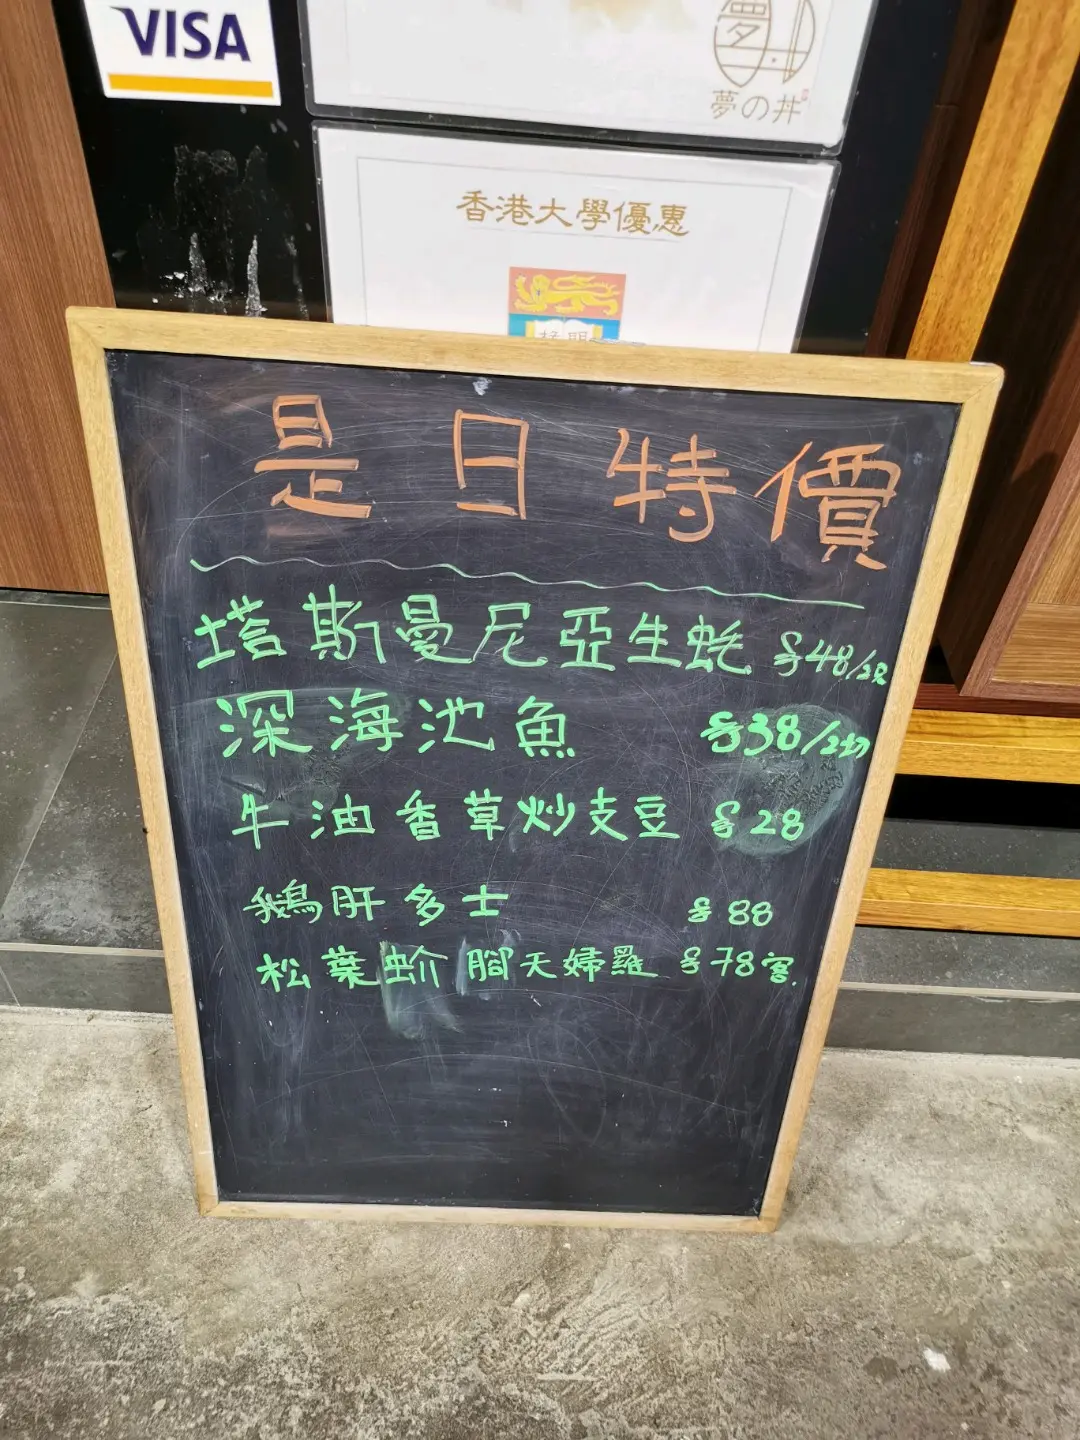 VISA
夢の丼
香港大學優惠
是日特價
塔斯曼尼亞生蚝 $48/2只
深海池魚 $38/2切
牛油香草炒支豆 $28
鵝肝多士 $88
松葉蚧腳天婦羅 $78客.